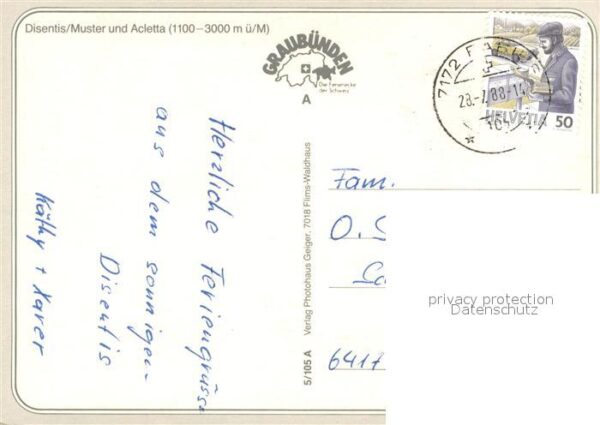 Disentis/Muster und Acletta (1100–3000 m ü/M)
GRAUBÜNDEN
Die Ferienecke
der Schweiz
A
HELVETIA 50
7172
28.-7.88.-14
Herzliche Feriengrüsse
aus dem sonnigen
Disentis
Käthy + Xaver
5/105 A Verlag Photohaus Geiger, 7018 Flims-Waldhaus
Fam.
O.
641
privacy protection
Datenschutz